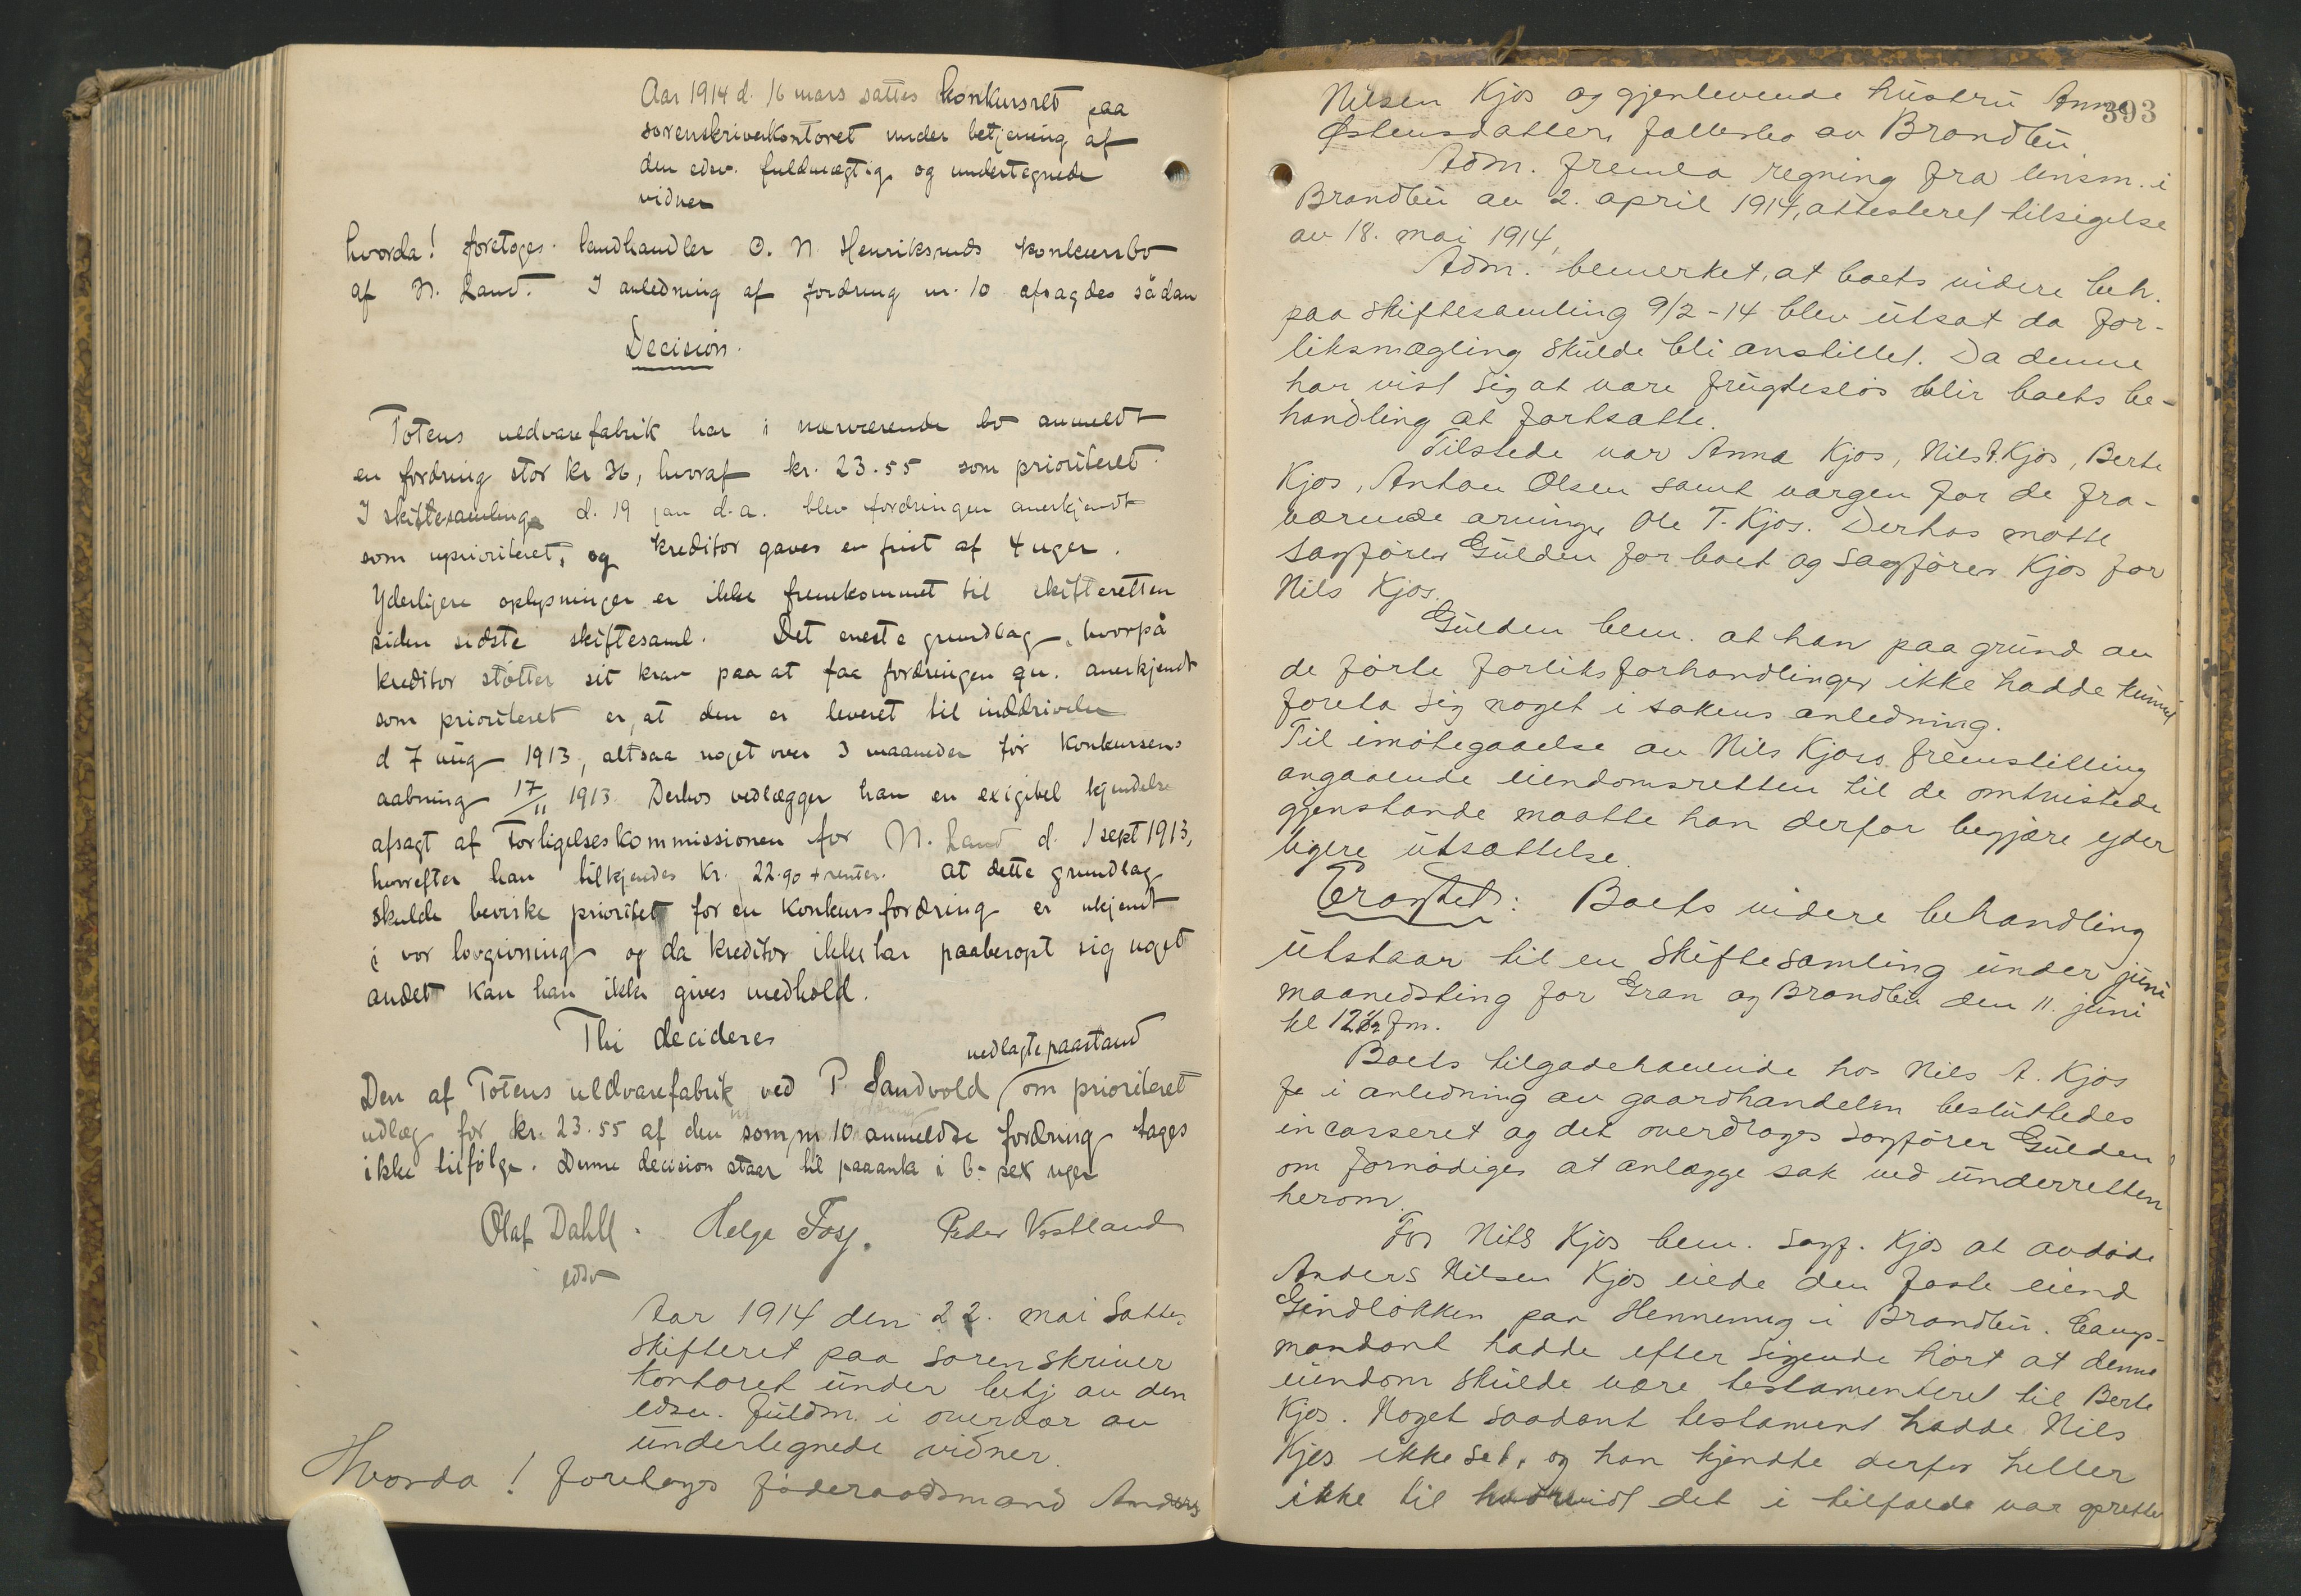 Aar 1914 d. 16 mars sattes konkursret paa
sorenskriverkontoret under betjening af
den edsv. fuldmægtig og undertegnede
vidner
hvorda! foretoges landhandler O. N Henriksruds konkursbo
af N. Land. I anledning af fordring nr. 10 afsagdes sådan
Decision.
Totens uldvarefabrik har i nærværende bo anmeldt
en fordring stor kr 36, hvoraf kr. 23.55 som prioriteret.
I skiftesamling d. 19 jan d.a. blev fordringen anerkjendt
som uprioriteret, og kreditor gaves en frist af 4 uger.
Yderligere oplysninger er ikke fremkommet til skifteretten
siden sidste skiftesaml. Det eneste grundlag, hvorpå
kreditor støtter sit krav paa at faa fordringen qu. anerkjendt
som prioriteret er, at den er leveret til inddrivelse
d 7 aug 1913, altsaa noget over 3 maaneder før konkursens
aabning 17/11 1913. Derhos vedlægger han en exigibel kjendelse
afsagt af Forligelseskommissionen for N. Land d. 1 sept 1913,
hvorefter han tilkjendes kr. 22.90 + renter. At dette grundlag
skulde bevirke prioritet for en konkursfordring er ukjendt
i vor lovgivning og da kreditor ikke har paaberopt sig noget
andet kan han ikke gives medhold.
Thi decideres
nedlagte paastand
Den af Totens uldvarefabrik ved P. Sandvold om prioriteret
udlæg for kr. 23.55 af den som nr 10 anmeldte fordring tages
ikke tilfølge. Denne decision staar til paaanke i 6 - sex uger
Olaf Dahll. Helge Fosj. Peder Vestland
edsv
Aar 1914 den 22. mai sattes
skifteret paa sorenskriver
kontoret under betj av den
edsv. fuldm. i overvær av
undertegnede vidner.
Hvorda! foretoges føderaadsmand Anders
393
Nilsen Kjos og gjenlevende hustru Anne
Østensdatters fællesbo av Brandbu
Adm. fremla regning fra lensm. i
Brandbu av 2. april 1914, attesteret tilsigelse
av 18. mai 1914,
Adm. bemerket, at boets videre beh.
paa skiftesamling 9/2-14 blev utsat da for-
liksmægling skulde bli anstillet. Da denne
har vist sig at være frugtesløs blir boets be-
handling at fortsætte.
Tilstede var Anna Kjos, Nils A. Kjos, Berte
Kjos, Anton Olsen samt vergen for de fra-
værende arvinger Ole T. Kjos. Derhos møtte
sagfører Gulden for boet og sagfører Kjos for
Nils Kjos.
Gulden bem. at han paa grund av
de førte forliksforhandlinger ikke hadde kunnet
foreta sig noget i sakens anledning.
Til imøtegaaelse av Nils Kjoss fremstilling
angaaende eiendomsretten til de omtvistede
gjenstande maatte han derfor begjære yder
ligere utsættelse.
Eragtet: Boets videre behandling
utstaar til en skiftesamling under juni
maanedsting for Gran og Brandbu den 11. juni
kl 12 1/2 fm.
Boets tilgodehavende hos Nils A. Kjos
i anledning av gaardhandelen besluttedes
incasseret og det overdroges sagfører Gulden
om fornødiges at anlægge sak ved underretten
herom.
For Nils Kjos bem. sagf. Kjos at avdøde
Anders Nilsen Kjos eiede den faste eiend
Gindløkken paa Hennung i Brandbu. Comp-
mandant hadde efter sigende hørt at denne
eiendom skulde være testamenteret til Berte
Kjos. Noget saadant testament hadde Nils
Kjos ikke set, og han kjendte derfor heller
ikke til hvorvidt det i tilfælde var oprettet